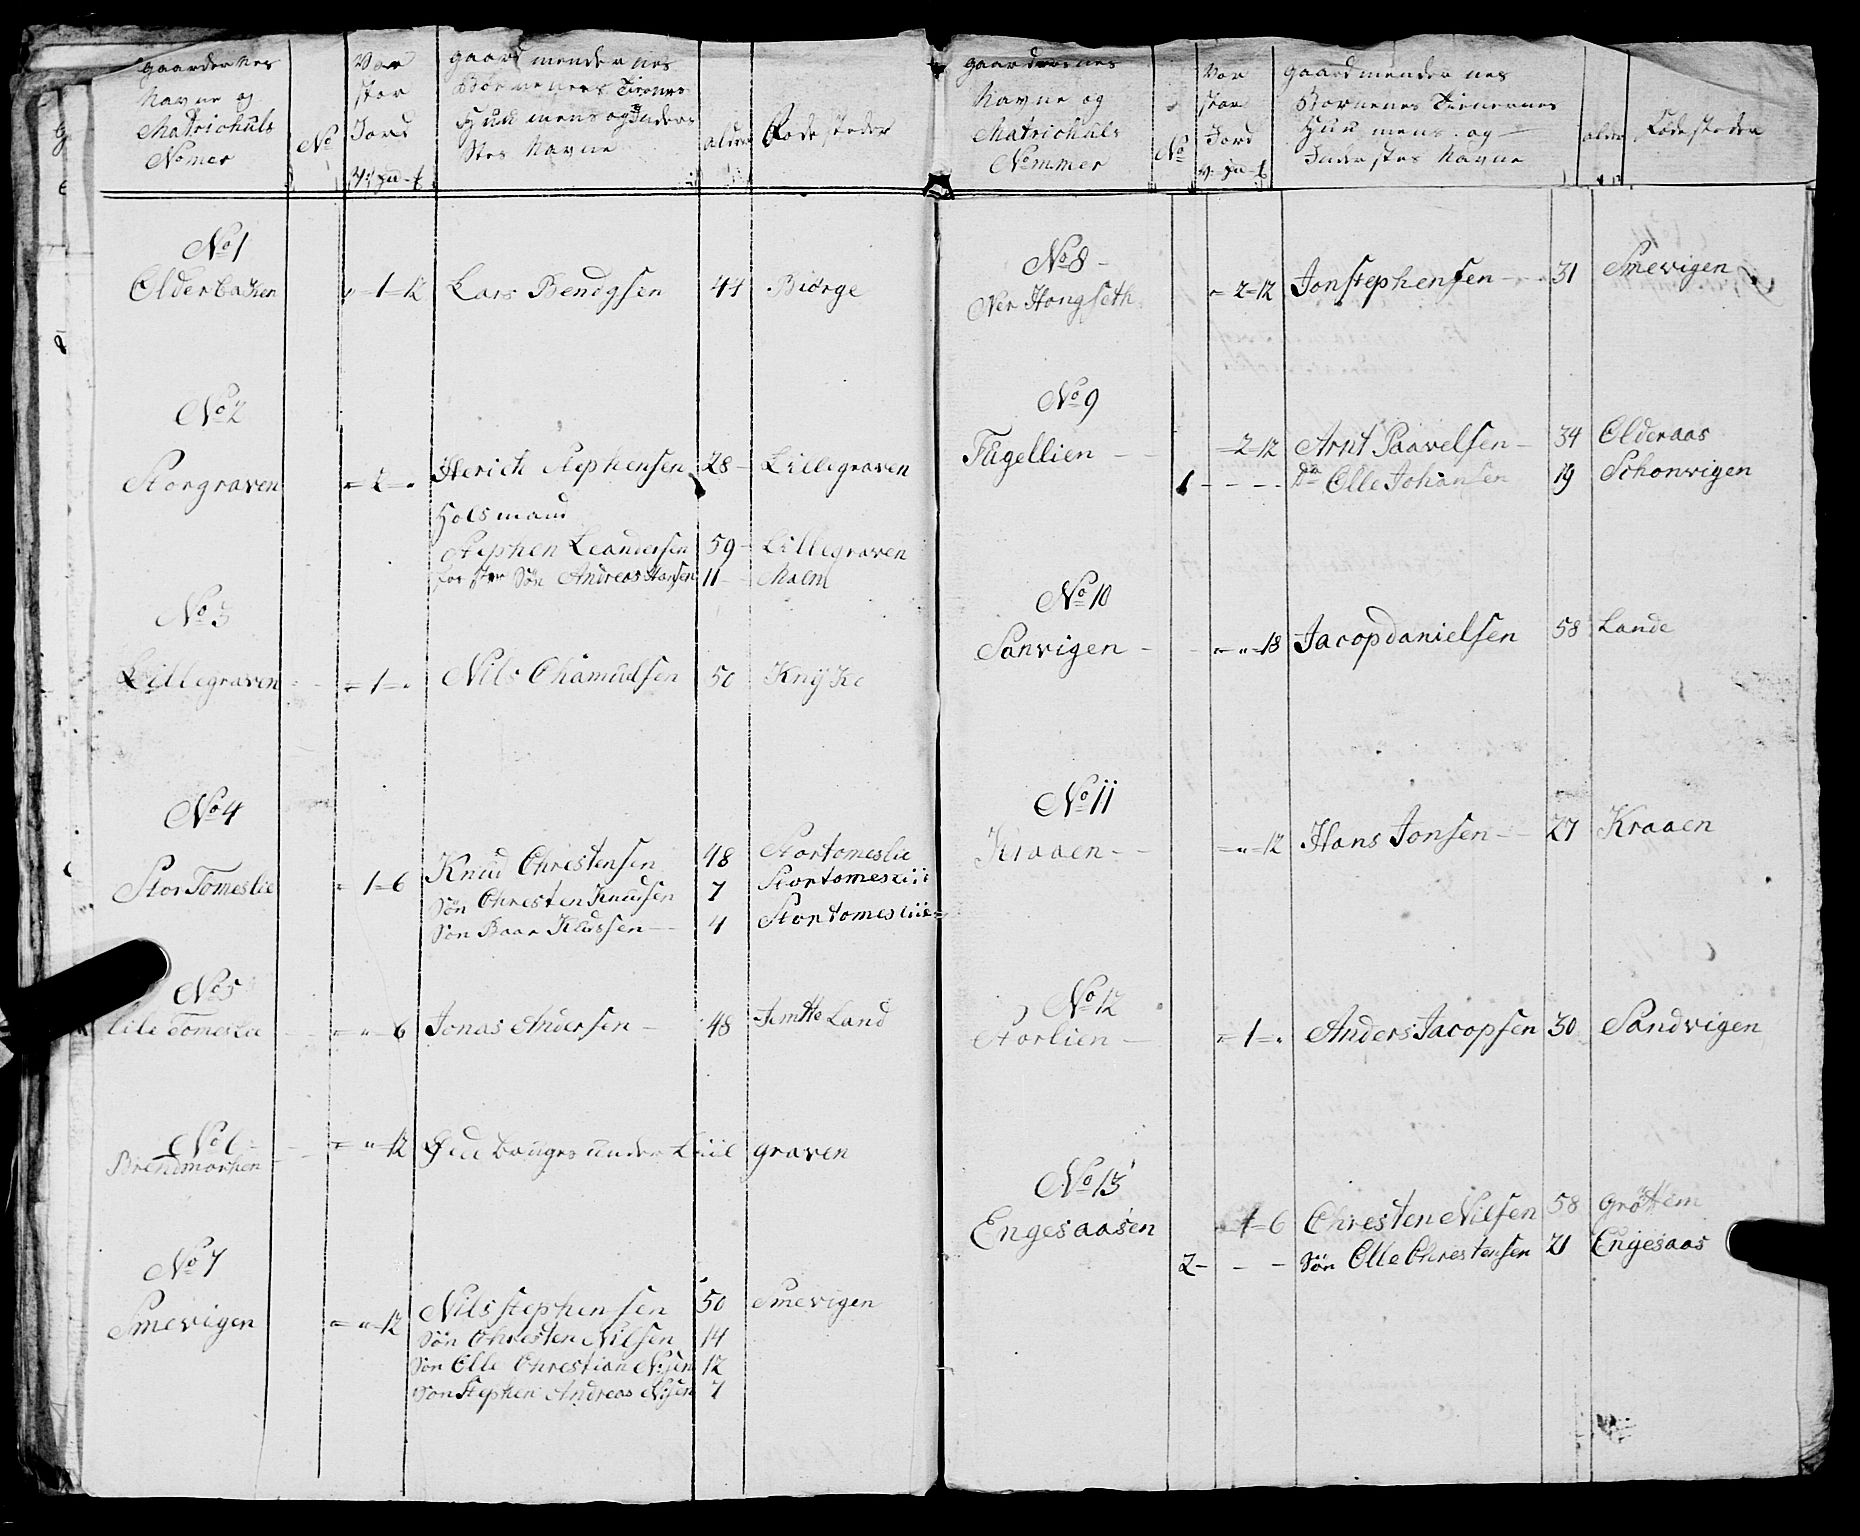 gaardernes
Navne og
Matrichuls
Nomer
No
Vor
stor
Jord
gaard mendernes
Børnenes Tienernes
Huus mens og Inders
Stes Navne
alder
Føde steder
No 1
Olderbaken
" = 1 = 12
Lars Bendgsen
44
Biørge
No 2
Storgraven
= 2 = "
Herich Stephensen
28
Lillegraven
Holsmand
Stephen Leandersen
59
Lillegraven
Søn Andreas Hansen
11
Malm
No 3
Lillegraven
= 1 = "
Nils Chamudsen
50
Knÿke
No 4
Stor Tomeslie
" 1 = 6
Knud Chrestensen
48
Stortomeslie
Søn Chresten Knudsen
7
Stortomesliie
Søn Baar Knudsen
4
Stortomesliie
No 5
Lile Tomeslie
= " = 6
Jonas Andersen
48
Jemtte Land
No 6
Brendmoehen
= " = 12
Øde bruges under Liilgraven
No 7
Smevigen
= " = 12
Nils Stephensen
50
Smevigen
Søn Chresten Nilsen
14
Søn Olle Chrestian Nilsen
12
Søn Stephen Andreas Nilsen
7
gaardernes
Navne og
Matrichuls
Nommer
No
Vor
stor
Jord
gaard mendernes
Børnenes Tienernes
Huus mens og
Inderstes Navne
alder
Føde steder
No 8
Ner Hongseth
" 2 = 12
Jon Stephensen
31
Smevigen
No 9
Fugellien
= 2 = 12
Arnt Paavelsen
34
Olderaas
1
Do Olle Johansen
19
Schonvigen
No 10
Sanvigen
= " = 18
Jacop danielsen
58
Lande
No 11
Kraaen
= " = 12
Hans Jonsen
27
Kraaen
No 12
Storlien
= 1 = "
Anders Jacopsen
30
Sandvigen
No 13
Engesaasen
" 1 = 6
Chresten Nilsen
58
Grøttem
2
Søn Olle Chrestensen
21
Engesaas